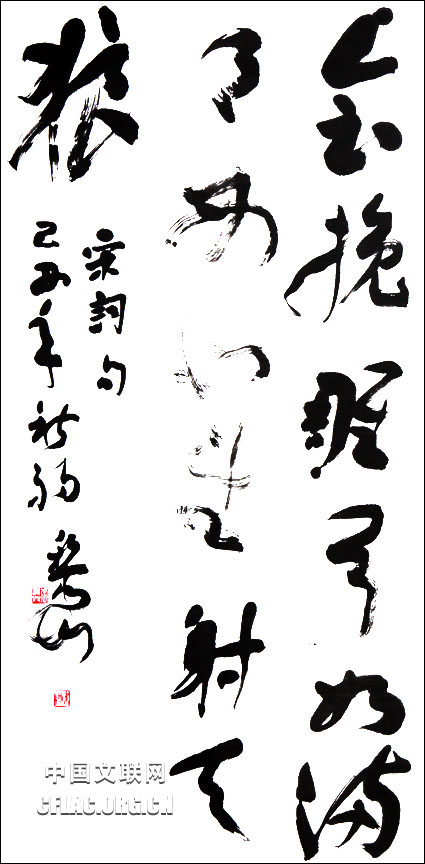 会挽雕弓如满
月西北望射天
狼
宋詞句
己丑年
中国文联网
CFLAC.ORG.CN